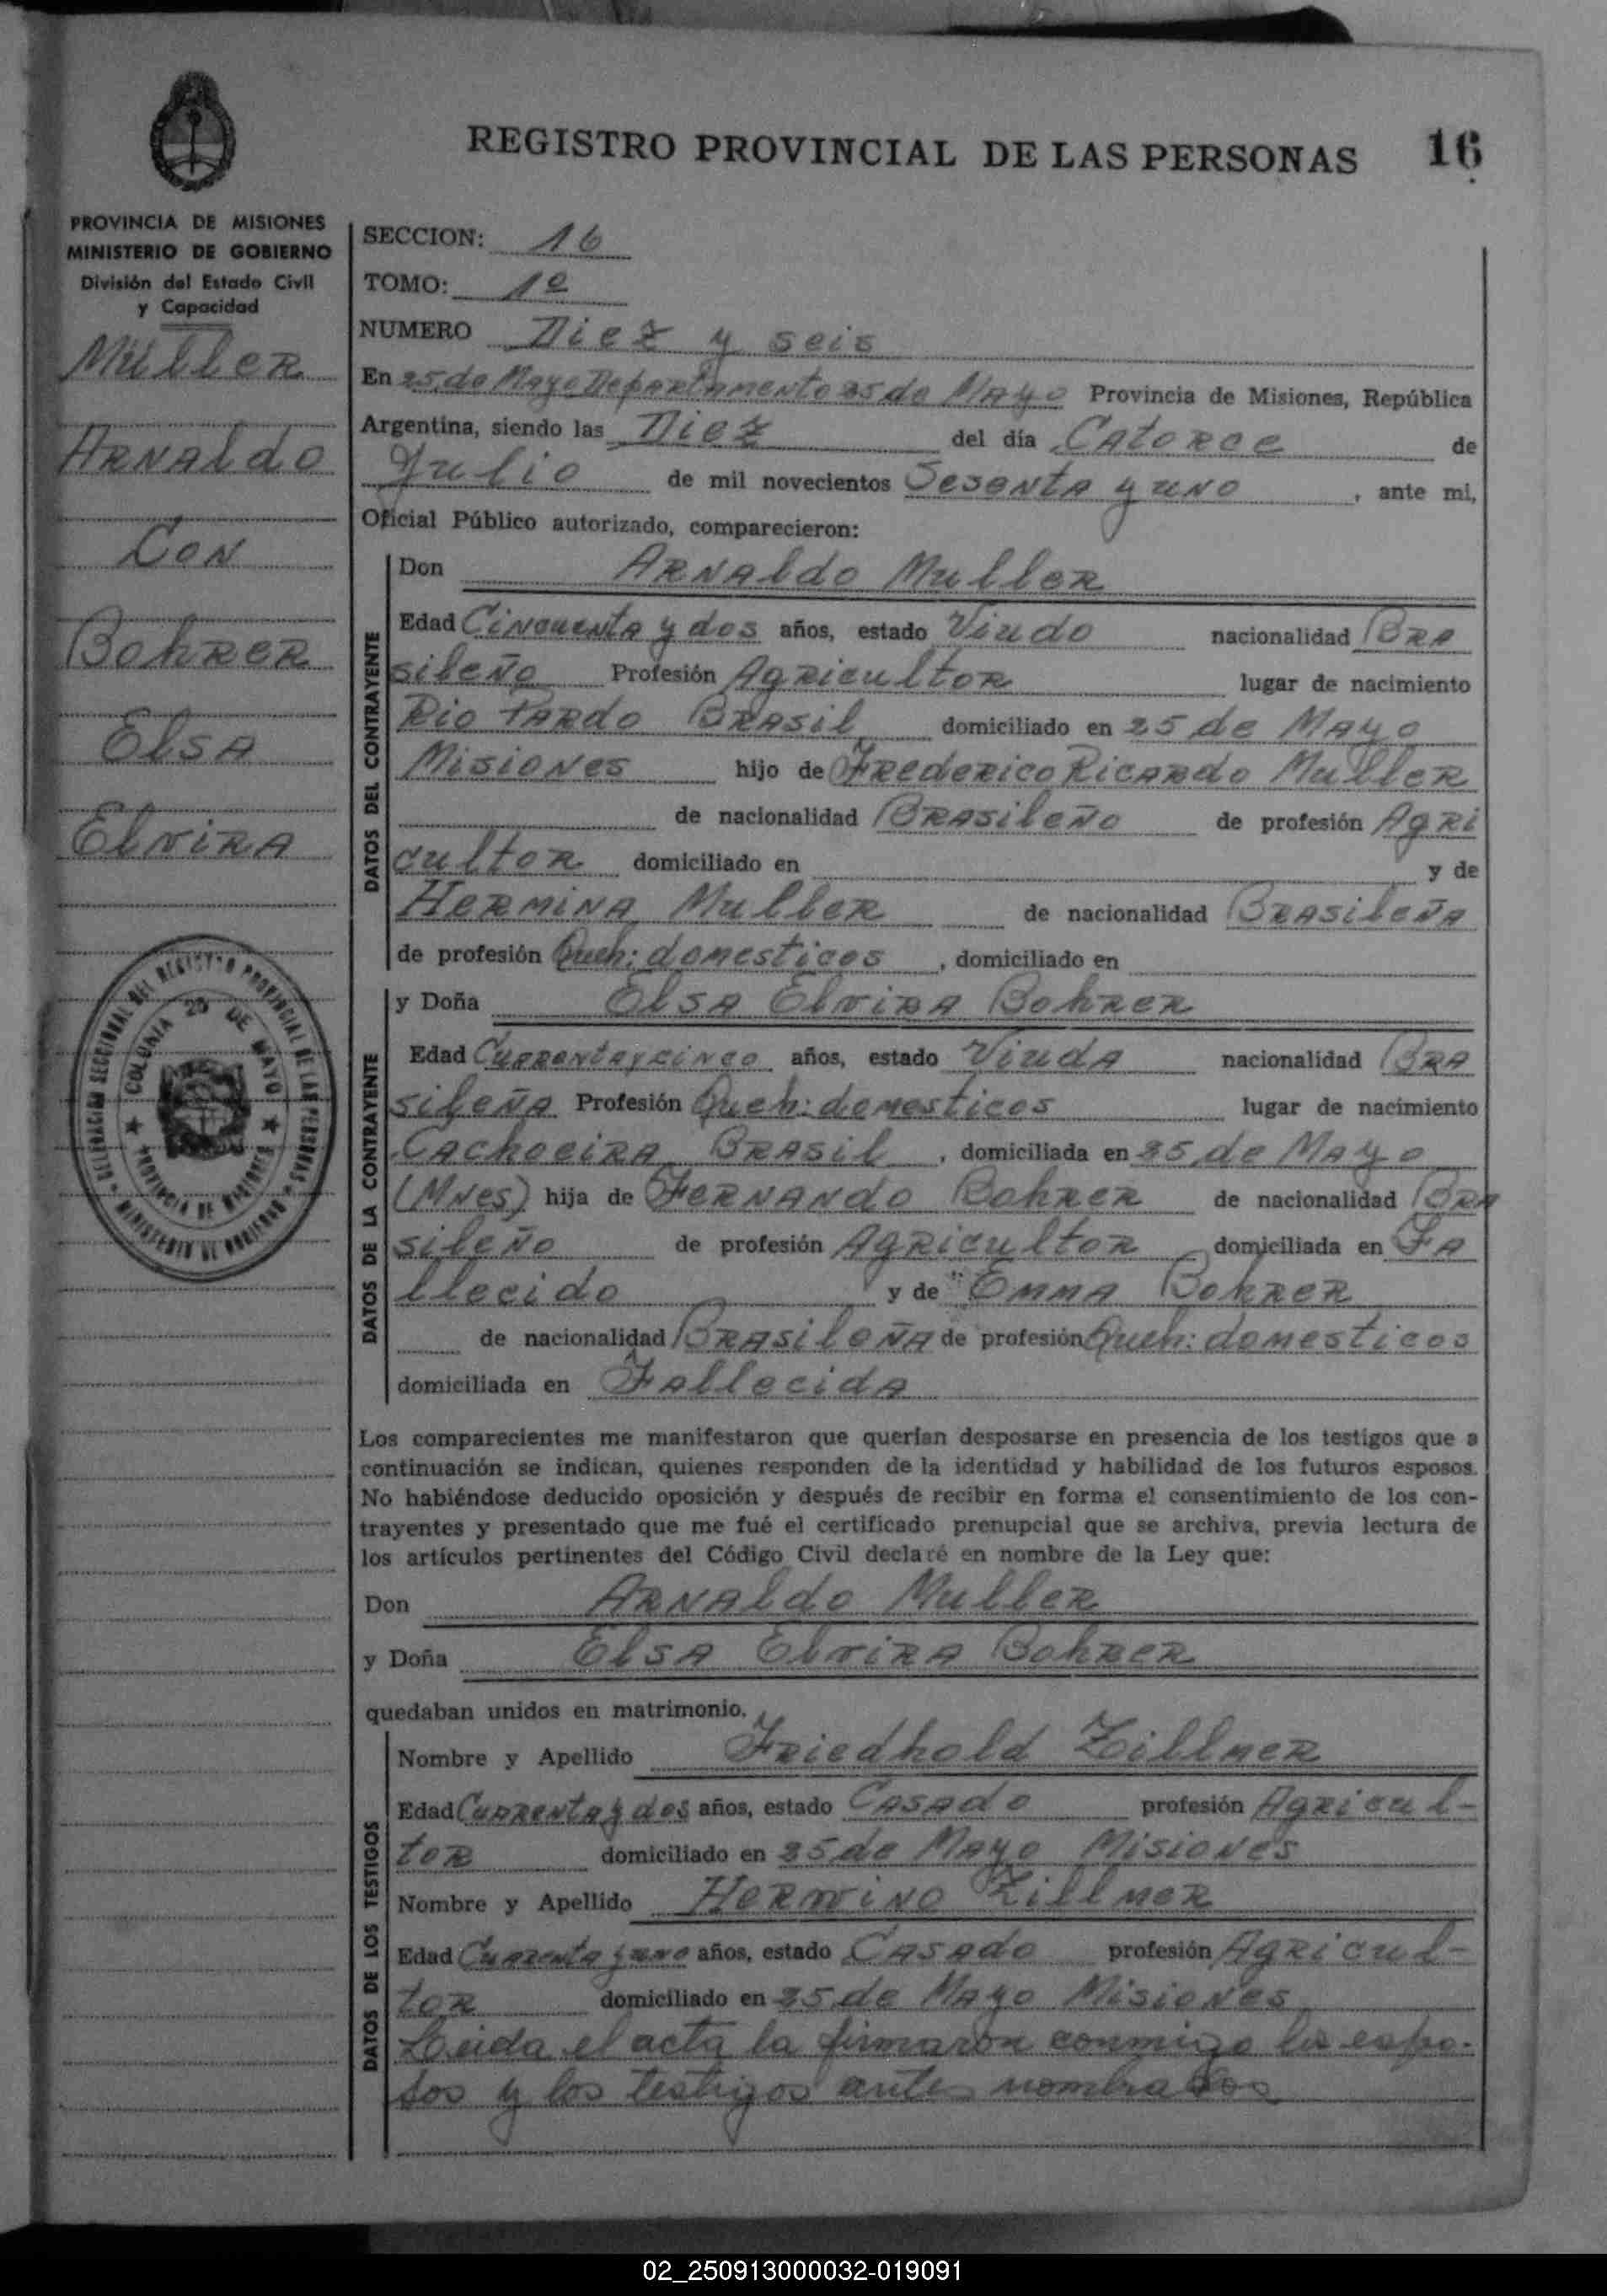 REGISTRO PROVINCIAL DE LAS PERSONAS 16
PROVINCIA DE MISIONES
MINISTERIO DE GOBIERNO
División del Estado Civil
y Capacidad
Müller
Arnaldo
Con
Bohrer
Elsa
Elvira
DELEGACIÓN SECCIONAL DEL REGISTRO PROVINCIAL DE LAS PERSONAS
COLONIA 25 DE MAYO
PROVINCIA DE MISIONES
MINISTERIO DE GOBIERNO
SECCION: 16
TOMO: 1º
NUMERO Diez y seis
En 25 de Mayo Departamento 25 de Mayo Provincia de Misiones, República
Argentina, siendo las Diez del día Catorce de
Julio de mil novecientos Sesenta y uno, ante mi,
Oficial Público autorizado, comparecieron:
DATOS DEL CONTRAYENTE
Don Arnaldo Muller
Edad Cincuenta y dos años, estado Viudo nacionalidad Bra
sileño Profesión Agricultor lugar de nacimiento
Rio Pardo Brasil domiciliado en 25 de Mayo
Misiones hijo de Frederico Ricardo Muller
de nacionalidad Brasileño de profesión Agri
cultor domiciliado en y de
Hermina Muller de nacionalidad Brasileña
de profesión Queh: domesticos, domiciliado en
DATOS DE LA CONTRAYENTE
y Doña Elsa Elvira Bohrer
Edad Cuarenta y cinco años, estado Viuda nacionalidad Bra
sileña Profesión Queh: domesticos lugar de nacimiento
Cachoeira Brasil, domiciliada en 25 de Mayo
(Mnes) hija de Fernando Bohrer de nacionalidad Bra
sileño de profesión Agricultor domiciliada en Fa
llecido y de Emma Bohrer
de nacionalidad Brasileña de profesión Queh: domesticos
domiciliada en Fallecida
Los comparecientes me manifestaron que querían desposarse en presencia de los testigos que a
continuación se indican, quienes responden de la identidad y habilidad de los futuros esposos.
No habiéndose deducido oposición y después de recibir en forma el consentimiento de los con-
trayentes y presentado que me fué el certificado prenupcial que se archiva, previa lectura de
los artículos pertinentes del Código Civil declaré en nombre de la Ley que:
Don Arnaldo Muller
y Doña Elsa Elvira Bohrer
quedaban unidos en matrimonio.
DATOS DE LOS TESTIGOS
Nombre y Apellido Friedhold Zillmer
Edad Cuarenta y dos años, estado Casado profesión Agricul-
tor domiciliado en 25 de Mayo Misiones
Nombre y Apellido Herwino Zillmer
Edad Cuarenta y uno años, estado Casado profesión Agricul-
tor domiciliado en 25 de Mayo Misiones
Leida el acta la firmaron conmigo los espo-
sos y los testigos antes nombrados
02_250913000032-019091